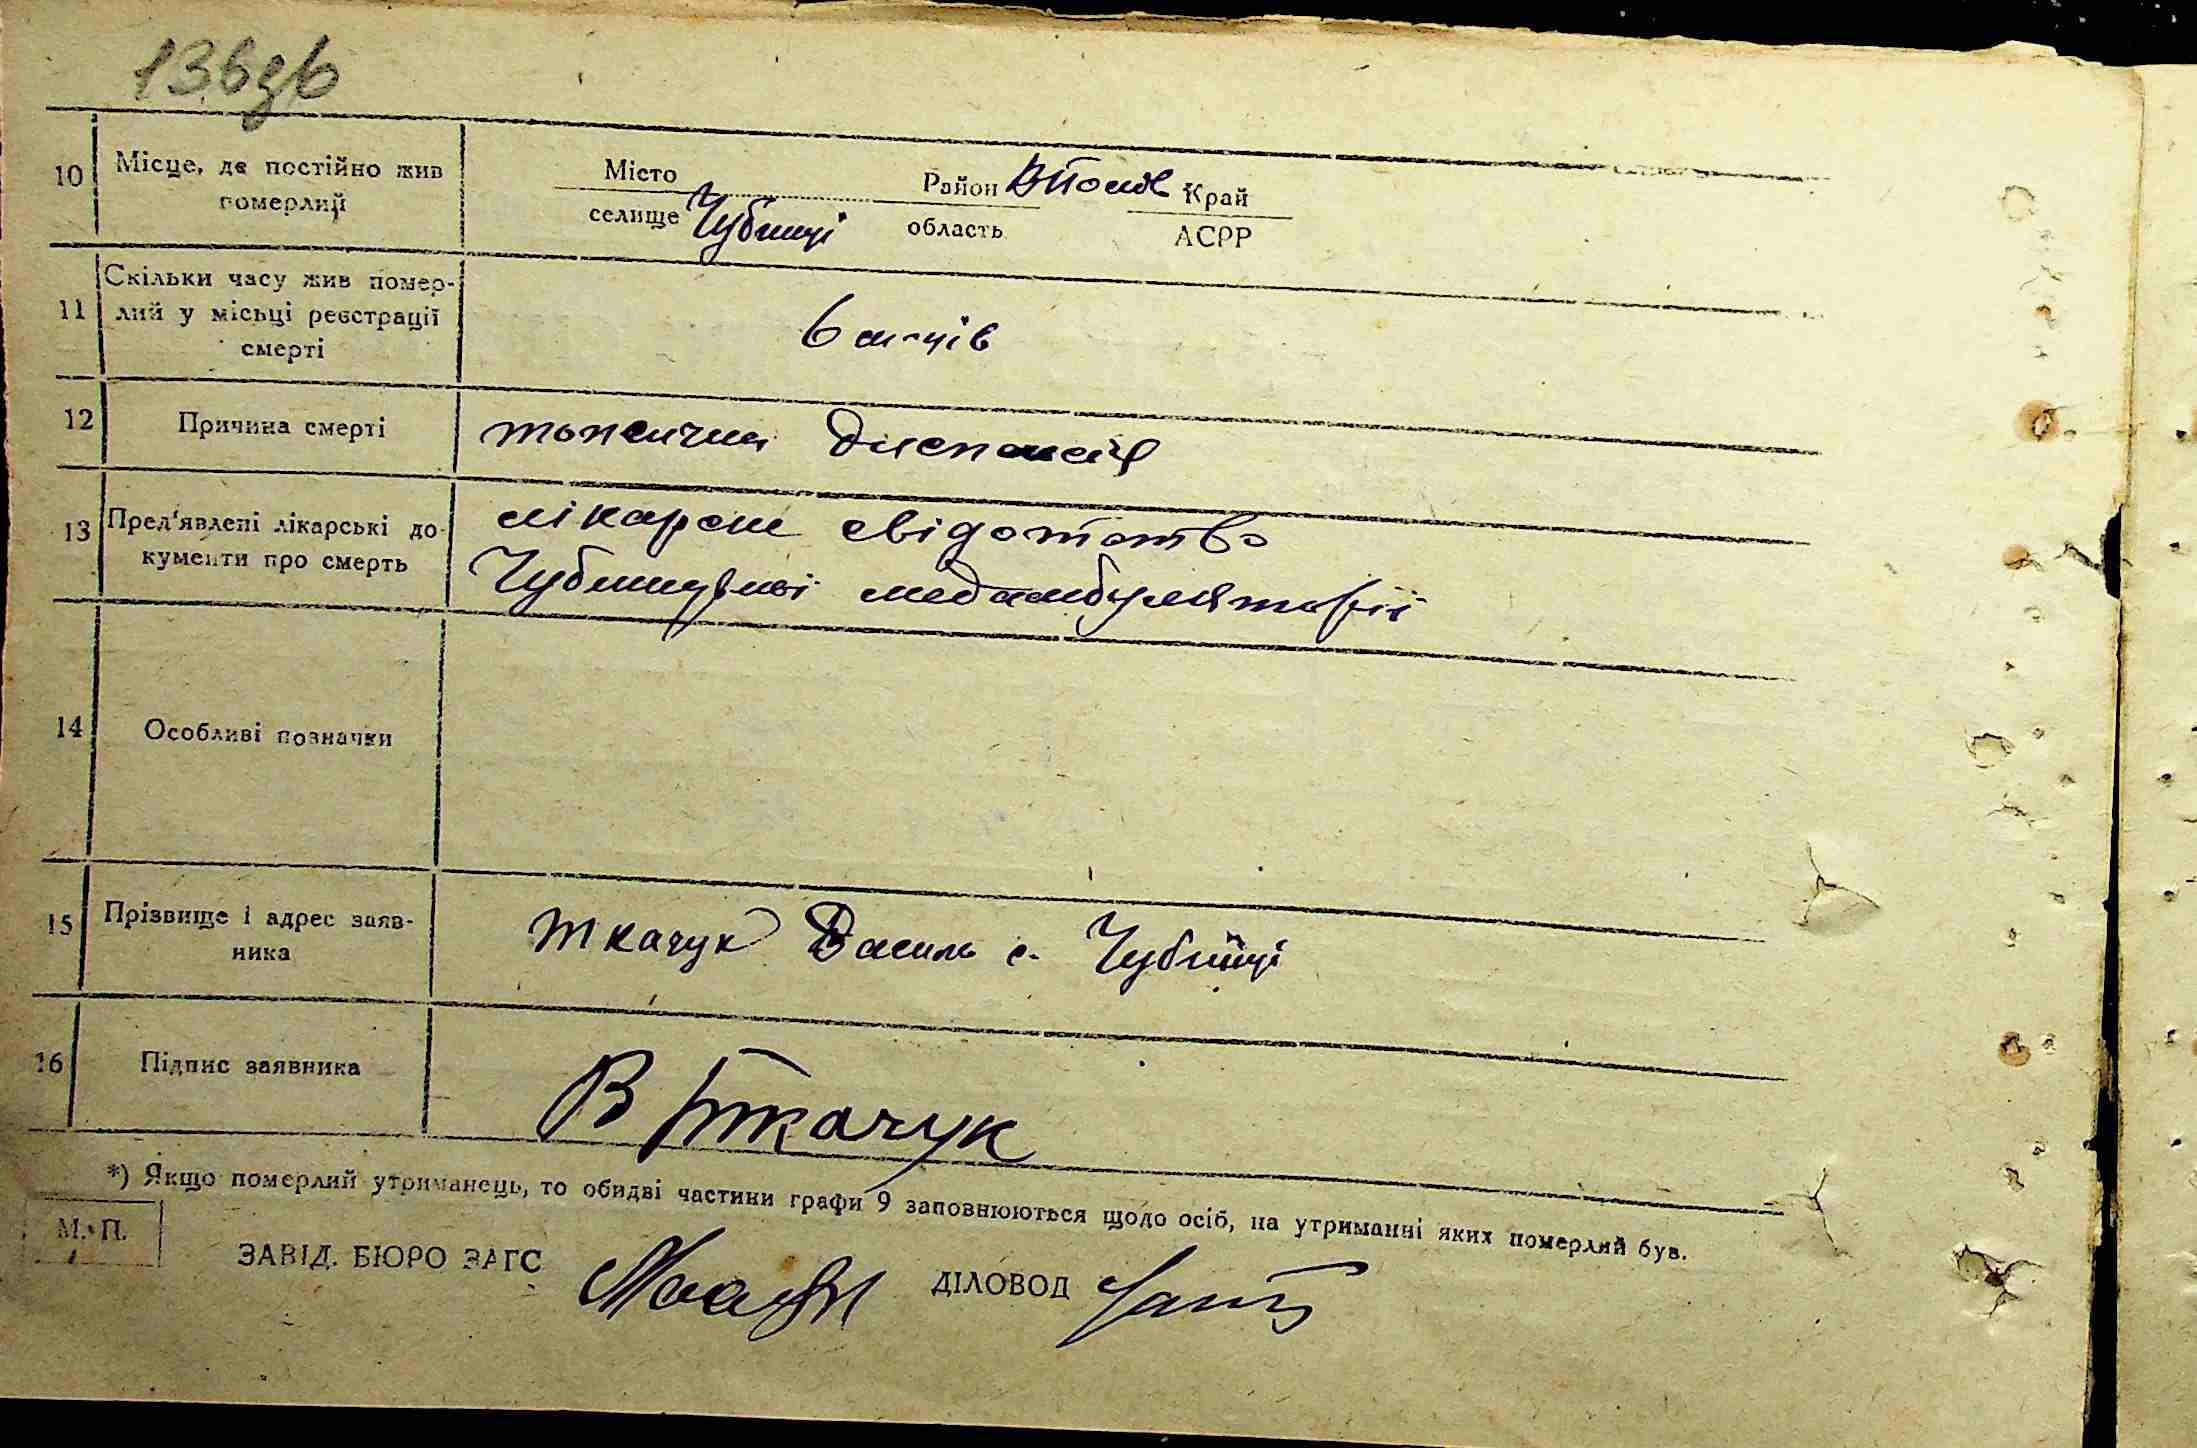 136зв
10 Місце, де постійно жив Місто Район Край
померлий селище Чубинці область АСРР
11 Скільки часу жив помер-
лий у місьці реєстрації 6 м-ців
смерті
12 Причина смерті токсична диспепсія
13 Пред'явлені лікарські до- лікарське свідотство
кументи про смерть медамбуляторії
14 Особливі позначки
15 Прізвище і адрес заяв- Ткачук Василь с. Чубинці
ника
16 Підпис заявника В Ткачук
*) Якщо померлий утриманець, то обидві частини графи 9 заповнюються щодо осіб, на утриманні яких померлий був.
М. П.
ЗАВІД. БЮРО ЗАГС ДІЛОВОД